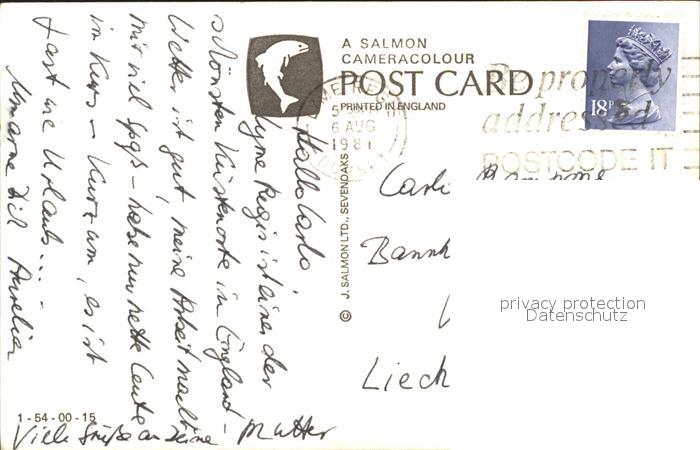 A SALMON
CAMERACOLOUR
POST CARD
PRINTED IN ENGLAND
Be properly
addressed
POSTCODE IT
18P
6 AUG
1981
© J. SALMON LTD., SEVENOAKS
Hallo Carlo!
Lyme Regis ist eines der
schönsten Küstenorte in England -
Wetter ist gut, meine Arbeit macht
mir viel Spaß - habe nur nette Leute
im Kurs - Kurzum, es ist
fast wie Urlaub ...
Umarme Dich Aurelia
Viele Grüße an Deine Mutter
Bannh
Liech
privacy protection
Datenschutz
1-54-00-15